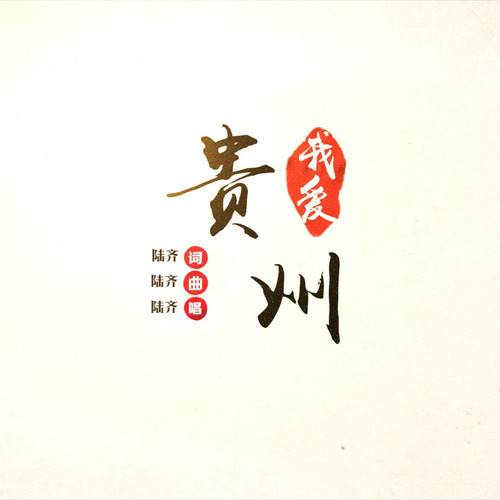 我爱
贵州
陆齐 词
陆齐 曲
陆齐 唱